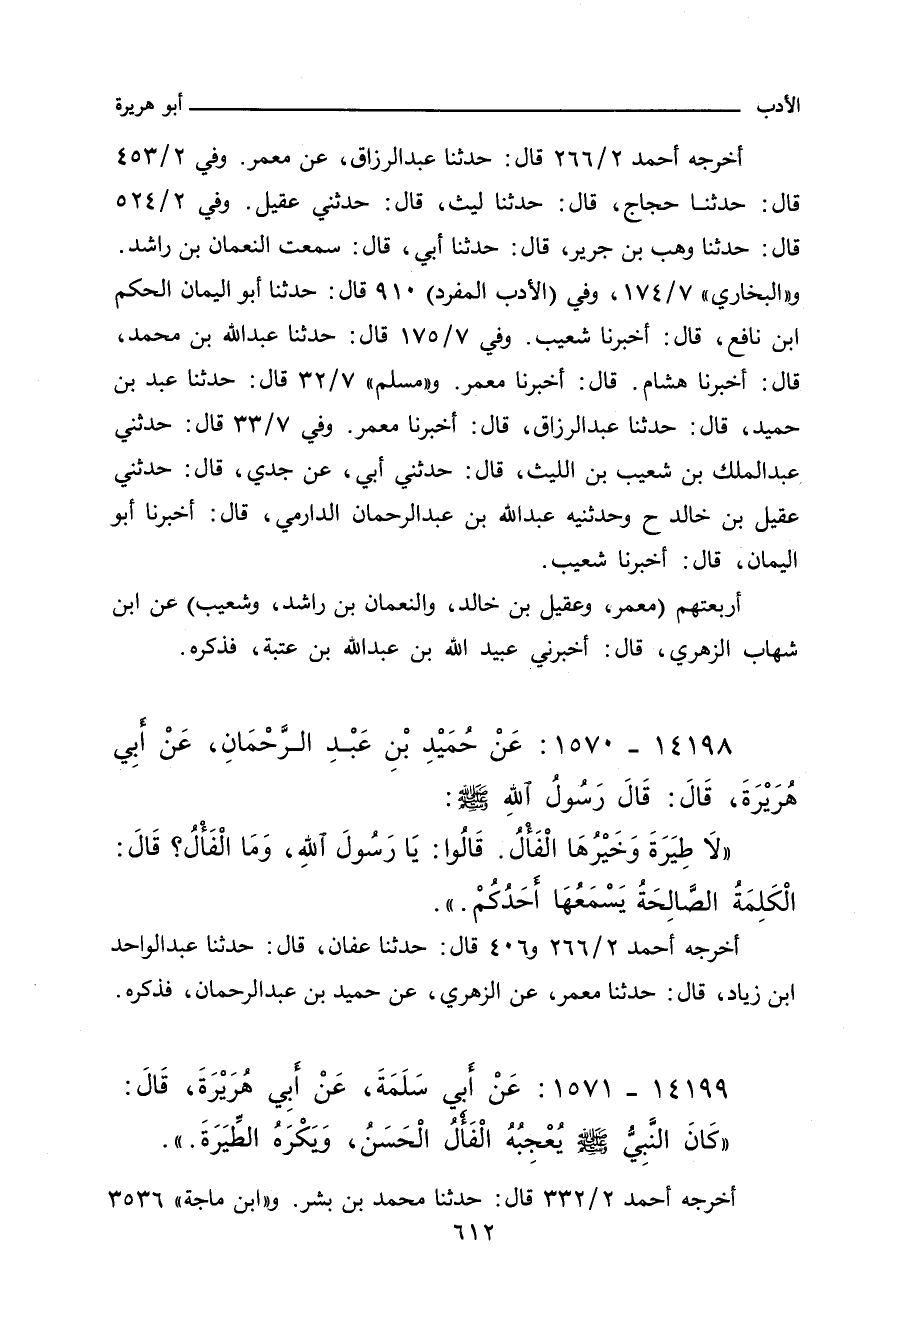 الأدب ــــــــــــــــــــ أبو هريرة
أخرجه أحمد ٢/٢٦٦ قال: حدثنا عبدالرزاق، عن معمر. وفي ٢/٤٥٣
قال: حدثنا حجاج، قال: حدثنا ليث، قال: حدثني عقيل. وفي ٢/٥٢٤
قال: حدثنا وهب بن جرير، قال: حدثنا أبي، قال: سمعت النعمان بن راشد.
و«البخاري» ٧/١٧٤، وفي (الأدب المفرد) ٩١٠ قال: حدثنا أبو اليمان الحكم
ابن نافع، قال: أخبرنا شعيب. وفي ٧/١٧٥ قال: حدثنا عبدالله بن محمد،
قال: أخبرنا هشام. قال: أخبرنا معمر. و«مسلم» ٧/٣٢ قال: حدثنا عبد بن
حميد، قال: حدثنا عبدالرزاق، قال: أخبرنا معمر. وفي ٧/٣٣ قال: حدثني
عبدالملك بن شعيب بن الليث، قال: حدثني أبي، عن جدي، قال: حدثني
عقيل بن خالد ح وحدثنيه عبدالله بن عبدالرحمان الدارمي، قال: أخبرنا أبو
اليمان، قال: أخبرنا شعيب.
أربعتهم (معمر، وعقيل بن خالد، والنعمان بن راشد، وشعيب) عن ابن
شهاب الزهري، قال: أخبرني عبيد الله بن عبدالله بن عتبة، فذكره.
١٤١٩٨ - ١٥٧٠: عَنْ حُمَيْدِ بْنِ عَبْدِ الرَّحْمَانِ، عَنْ أَبِي
هُرَيْرَةَ، قَالَ: قَالَ رَسُولُ اللهِ ﷺ:
«لَا طِيَرَةَ وَخَيْرُهَا الْفَأْلُ. قَالُوا: يَا رَسُولَ اللهِ، وَمَا الْفَأْلُ؟ قَالَ:
الْكَلِمَةُ الصَّالِحَةُ يَسْمَعُهَا أَحَدُكُمْ.».
أخرجه أحمد ٢/٢٦٦ و٤٠٦ قال: حدثنا عفان، قال: حدثنا عبدالواحد
ابن زياد، قال: حدثنا معمر، عن الزهري، عن حميد بن عبدالرحمان، فذكره.
١٤١٩٩ - ١٥٧١: عَنْ أَبِي سَلَمَةَ، عَنْ أَبِي هُرَيْرَةَ، قَالَ:
«كَانَ النَّبِيُّ ﷺ يُعْجِبُهُ الْفَأْلُ الْحَسَنُ، وَيَكْرَهُ الطِّيَرَةَ.».
أخرجه أحمد ٢/٣٣٢ قال: حدثنا محمد بن بشر. و«ابن ماجة» ٣٥٣٦
٦١٢